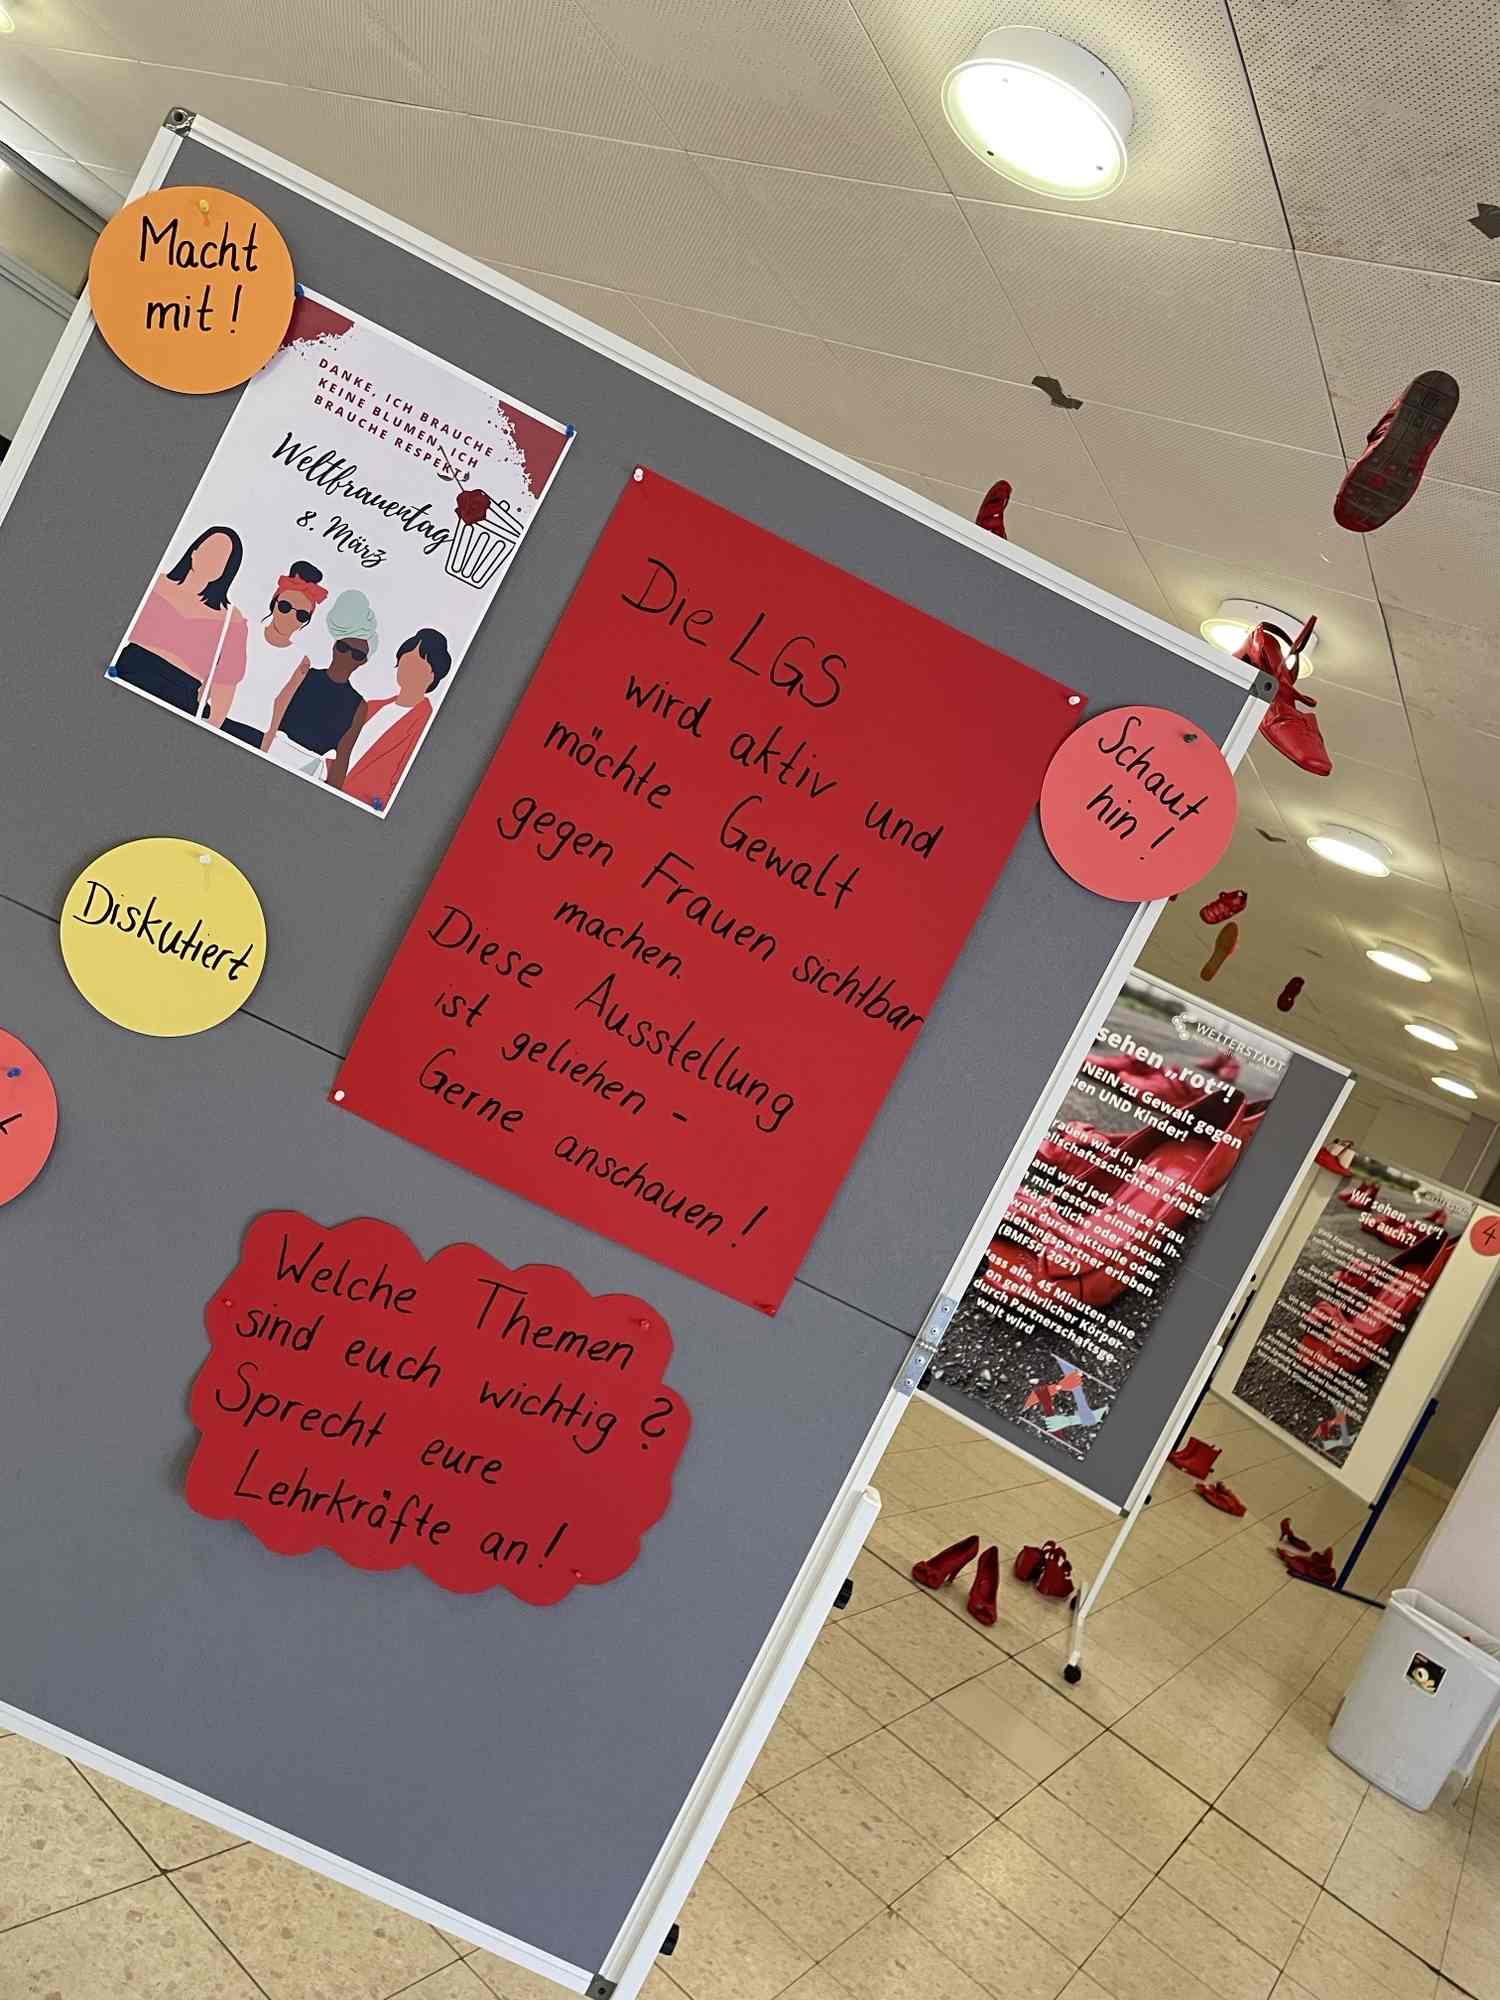 Macht
mit!
DANKE, ICH BRAUCHE
KEINE BLUMEN, ICH
BRAUCHE RESPEKT!
Weltfrauentag
8. März
Die LGS
wird aktiv und
möchte Gewalt
gegen Frauen sichtbar
machen.
Diese Ausstellung
ist geliehen -
Gerne anschauen!
Schaut
hin!
Diskutiert
Welche Themen
sind euch wichtig?
Sprecht eure
Lehrkräfte an!
WEITERSTADT
sehen „rot“!
NEIN zu Gewalt gegen
UND Kinder!
wird in jedem Alter
erlebt
wird jede vierte Frau
mindestens einmal in ih-
körperliche oder sexua-
durch aktuelle oder
erleben
(BMFSFJ 2021)
alle 45 Minuten eine
gefährlicher Körper-
durch Partnerschaftsge-
walt wird
Wir sehen „rot“!
Sie auch?!
4